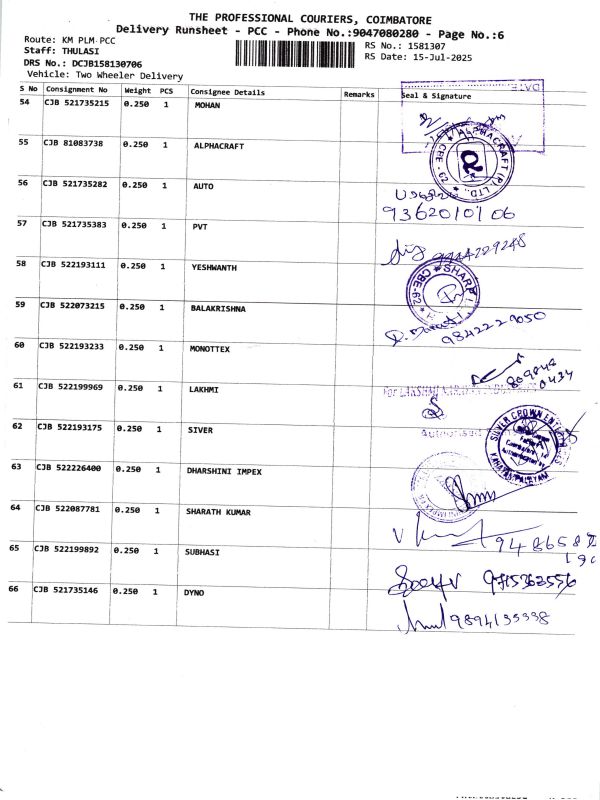 THE PROFESSIONAL COURIERS, COIMBATORE
Delivery Runsheet - PCC - Phone No.:9047080280 - Page No.:6
Route: KM PLM-PCC
RS No.: 1581307
Staff: THULASI
RS Date: 15-Jul-2025
DRS No.: DCJB158130706
Vehicle: Two Wheeler Delivery
S No Consignment No Weight PCS Consignee Details Remarks Seal & Signature
DATE
54 CJB 521735215 0.250 1 MOHAN
55 CJB 81083738 0.250 1 ALPHACRAFT
ALPHACRAFT (P) LTD., CBE - 62
56 CJB 521735282 0.250 1 AUTO
9362010106
57 CJB 521735383 0.250 1 PVT
9944209248
58 CJB 522193111 0.250 1 YESHWANTH
SHARP
CBE-62
59 CJB 522073215 0.250 1 BALAKRISHNA
9842229050
60 CJB 522193233 0.250 1 MONOTTEX
809848
0434
61 CJB 522199969 0.250 1 LAKHMI
For LAKSHMI
62 CJB 522193175 0.250 1 SIVER
Authorised
SILVER CROWN ENTERPRISES
KANAPALAYAM
63 CJB 522226400 0.250 1 DHARSHINI IMPEX
64 CJB 522087781 0.250 1 SHARATH KUMAR
948658
65 CJB 522199892 0.250 1 SUBHASI
9715362556
66 CJB 521735146 0.250 1 DYNO
9894135338